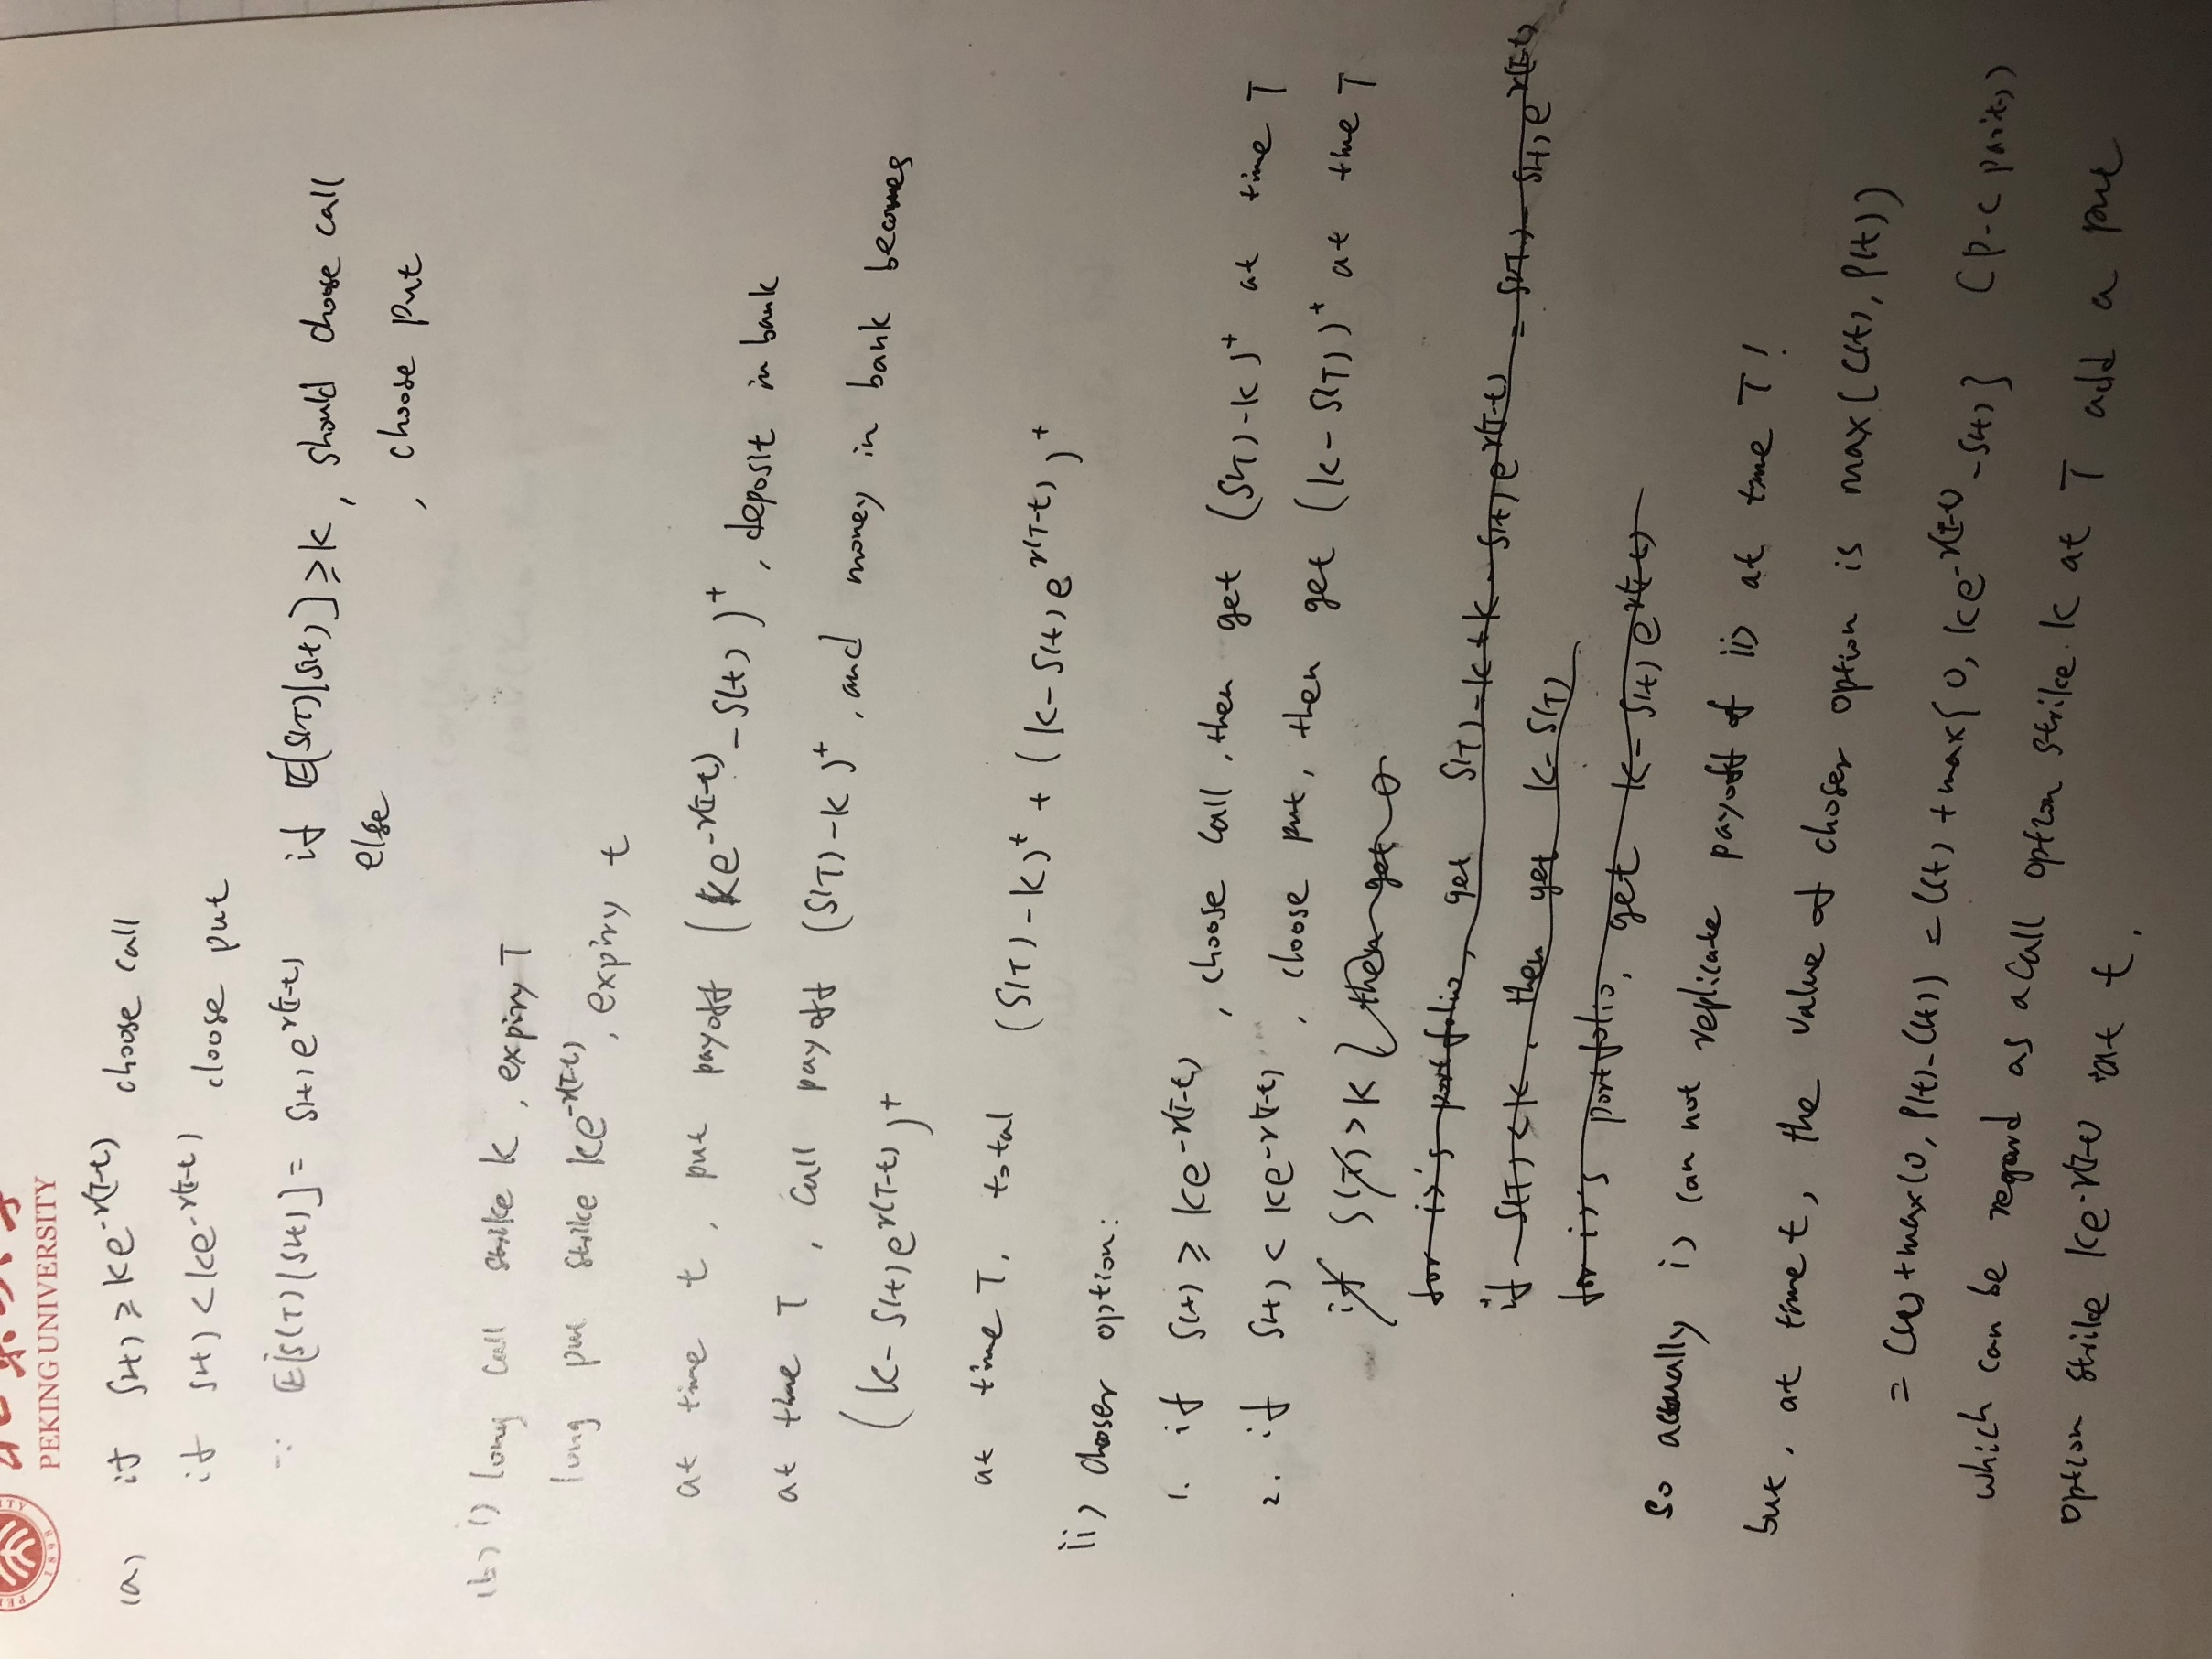 PEKING UNIVERSITY
1898
(a) if S(t) ≥ Ke^{-r(T-t)} choose call
if S(t) < Ke^{-r(T-t)} choose put
∵ E[S(T)|S(t)] = S(t)e^{r(T-t)} if E[S(T)|S(t)] ≥ K, should choose call
else , choose put
(b) i) long call strike K, expiry T
long put strike Ke^{-r(T-t)}, expiry t
at time t, put payoff (Ke^{-r(T-t)} - S(t))^+, deposit in bank
at time T, call payoff (S(T)-K)^+, and money in bank becomes
(K - S(t)e^{r(T-t)})^+
at time T, total (S(T)-K)^+ + (K-S(t)e^{r(T-t)})^+
ii) chooser option:
1. if S(t) ≥ Ke^{-r(T-t)}, choose call, then get (S(T)-K)^+ at time T
2. if S(t) < Ke^{-r(T-t)}, choose put, then get (K-S(T))^+ at time T
if S(T)>K then get 0
for i)'s portfolio, get S(T)-K+K-S(t)e^{r(T-t)} = S(T)-S(t)e^{r(T-t)}
if S(T)<K, then get K-S(T)
for i)'s portfolio, get K-S(t)e^{r(T-t)}
So actually i) can not replicate payoff of ii) at time T!
but, at time t, the value of choser option is max(C(t), P(t))
= C(t)+max(0, P(t)-C(t)) = C(t)+max{0, Ke^{-r(T-t)}-S(t)} (P-C parity)
which can be regard as a call option strike K at T add a put
option strike Ke^{-r(T-t)} at t.